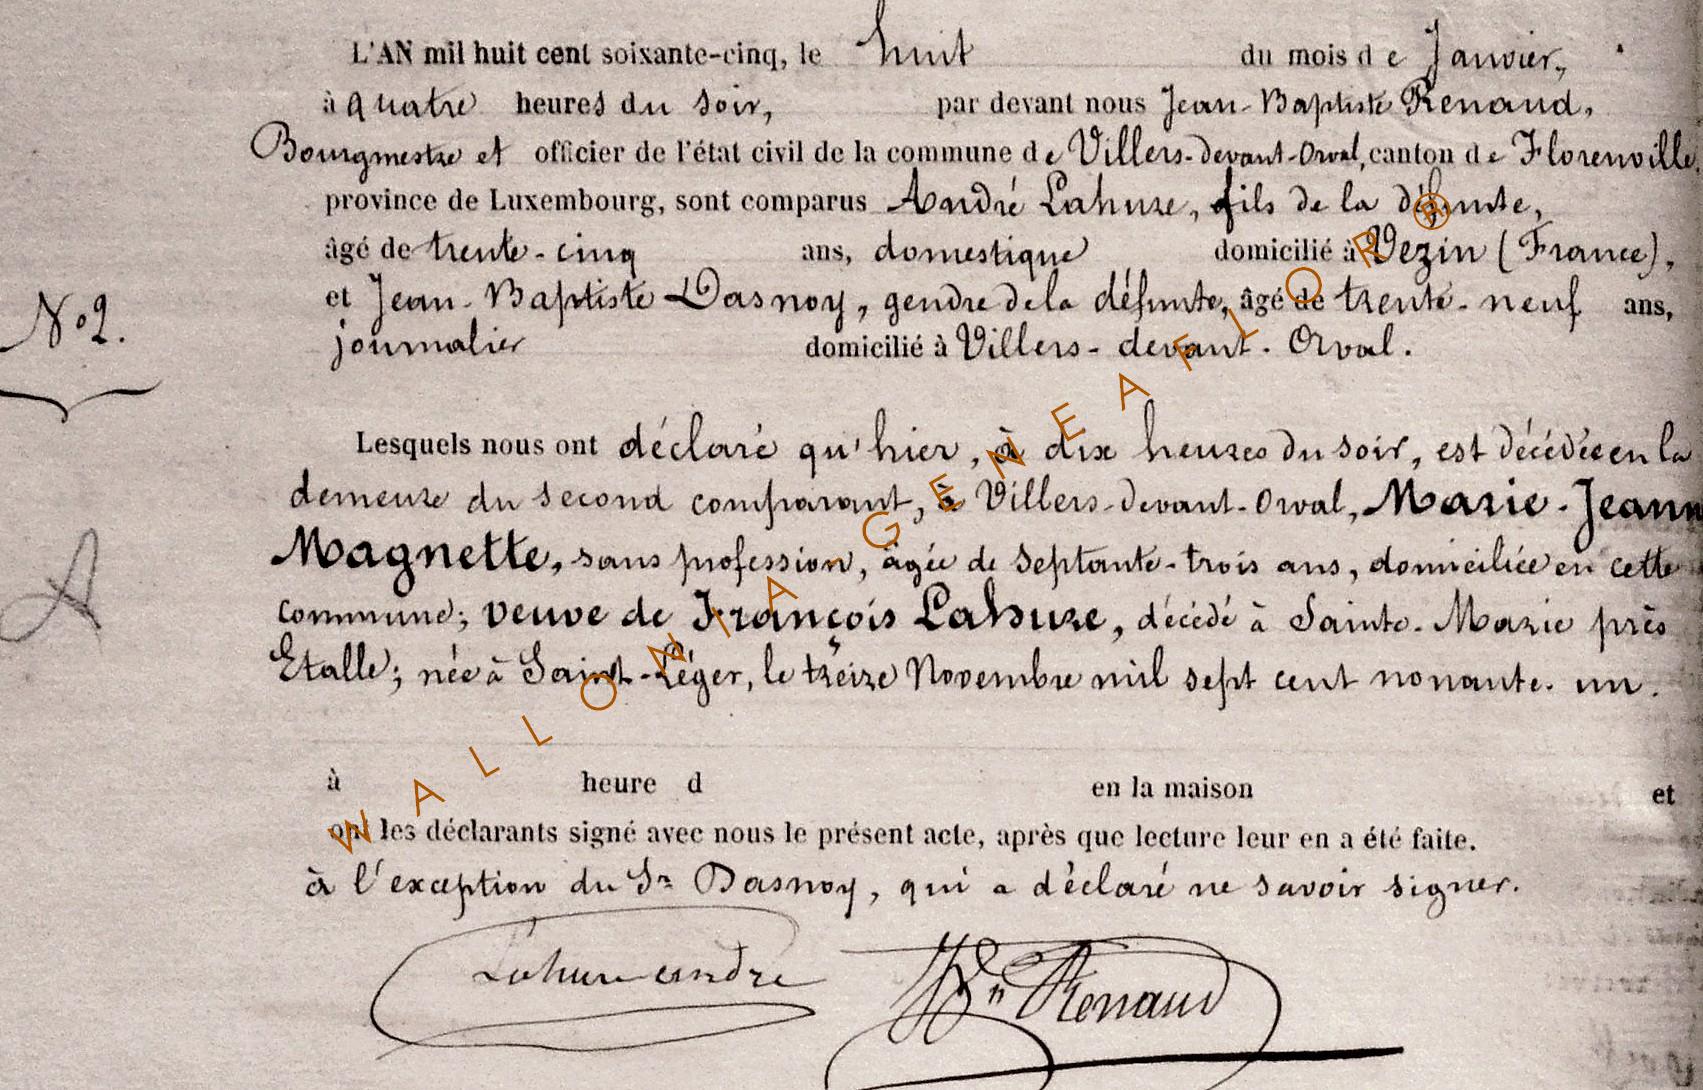 L'AN mil huit cent soixante-cinq, le huit du mois de Janvier,
à quatre heures du soir, par devant nous Jean-Baptiste Renaud,
Bourgmestre et officier de l'état civil de la commune de Villers-devant-Orval, canton de Florenville,
province de Luxembourg, sont comparus André Lahure, fils de la défunte,
âgé de trente-cinq ans, domestique domicilié à Vezin (France),
et Jean-Baptiste Dasnoy, gendre de la défunte, âgé de trente-neuf ans,
N° 2.
journalier domicilié à Villers-devant-Orval.
Lesquels nous ont déclaré qu'hier, à dix heures du soir, est décédée en la
demeure du second comparant, à Villers-devant-Orval, Marie-Jeann
Magnette, sans profession, âgée de septante-trois ans, domiciliée en cette
A
commune; veuve de François Lahure, décédé à Sainte-Marie près
Etalle; née à Saint-Léger, le treize Novembre mil sept cent nonante-un.
à heure d en la maison et
ont les déclarants signé avec nous le présent acte, après que lecture leur en a été faite.
à l'exception du Sr Dasnoy, qui a déclaré ne savoir signer.
Lahure andre
Renaud
WALLONIA-GENEAFLOR®